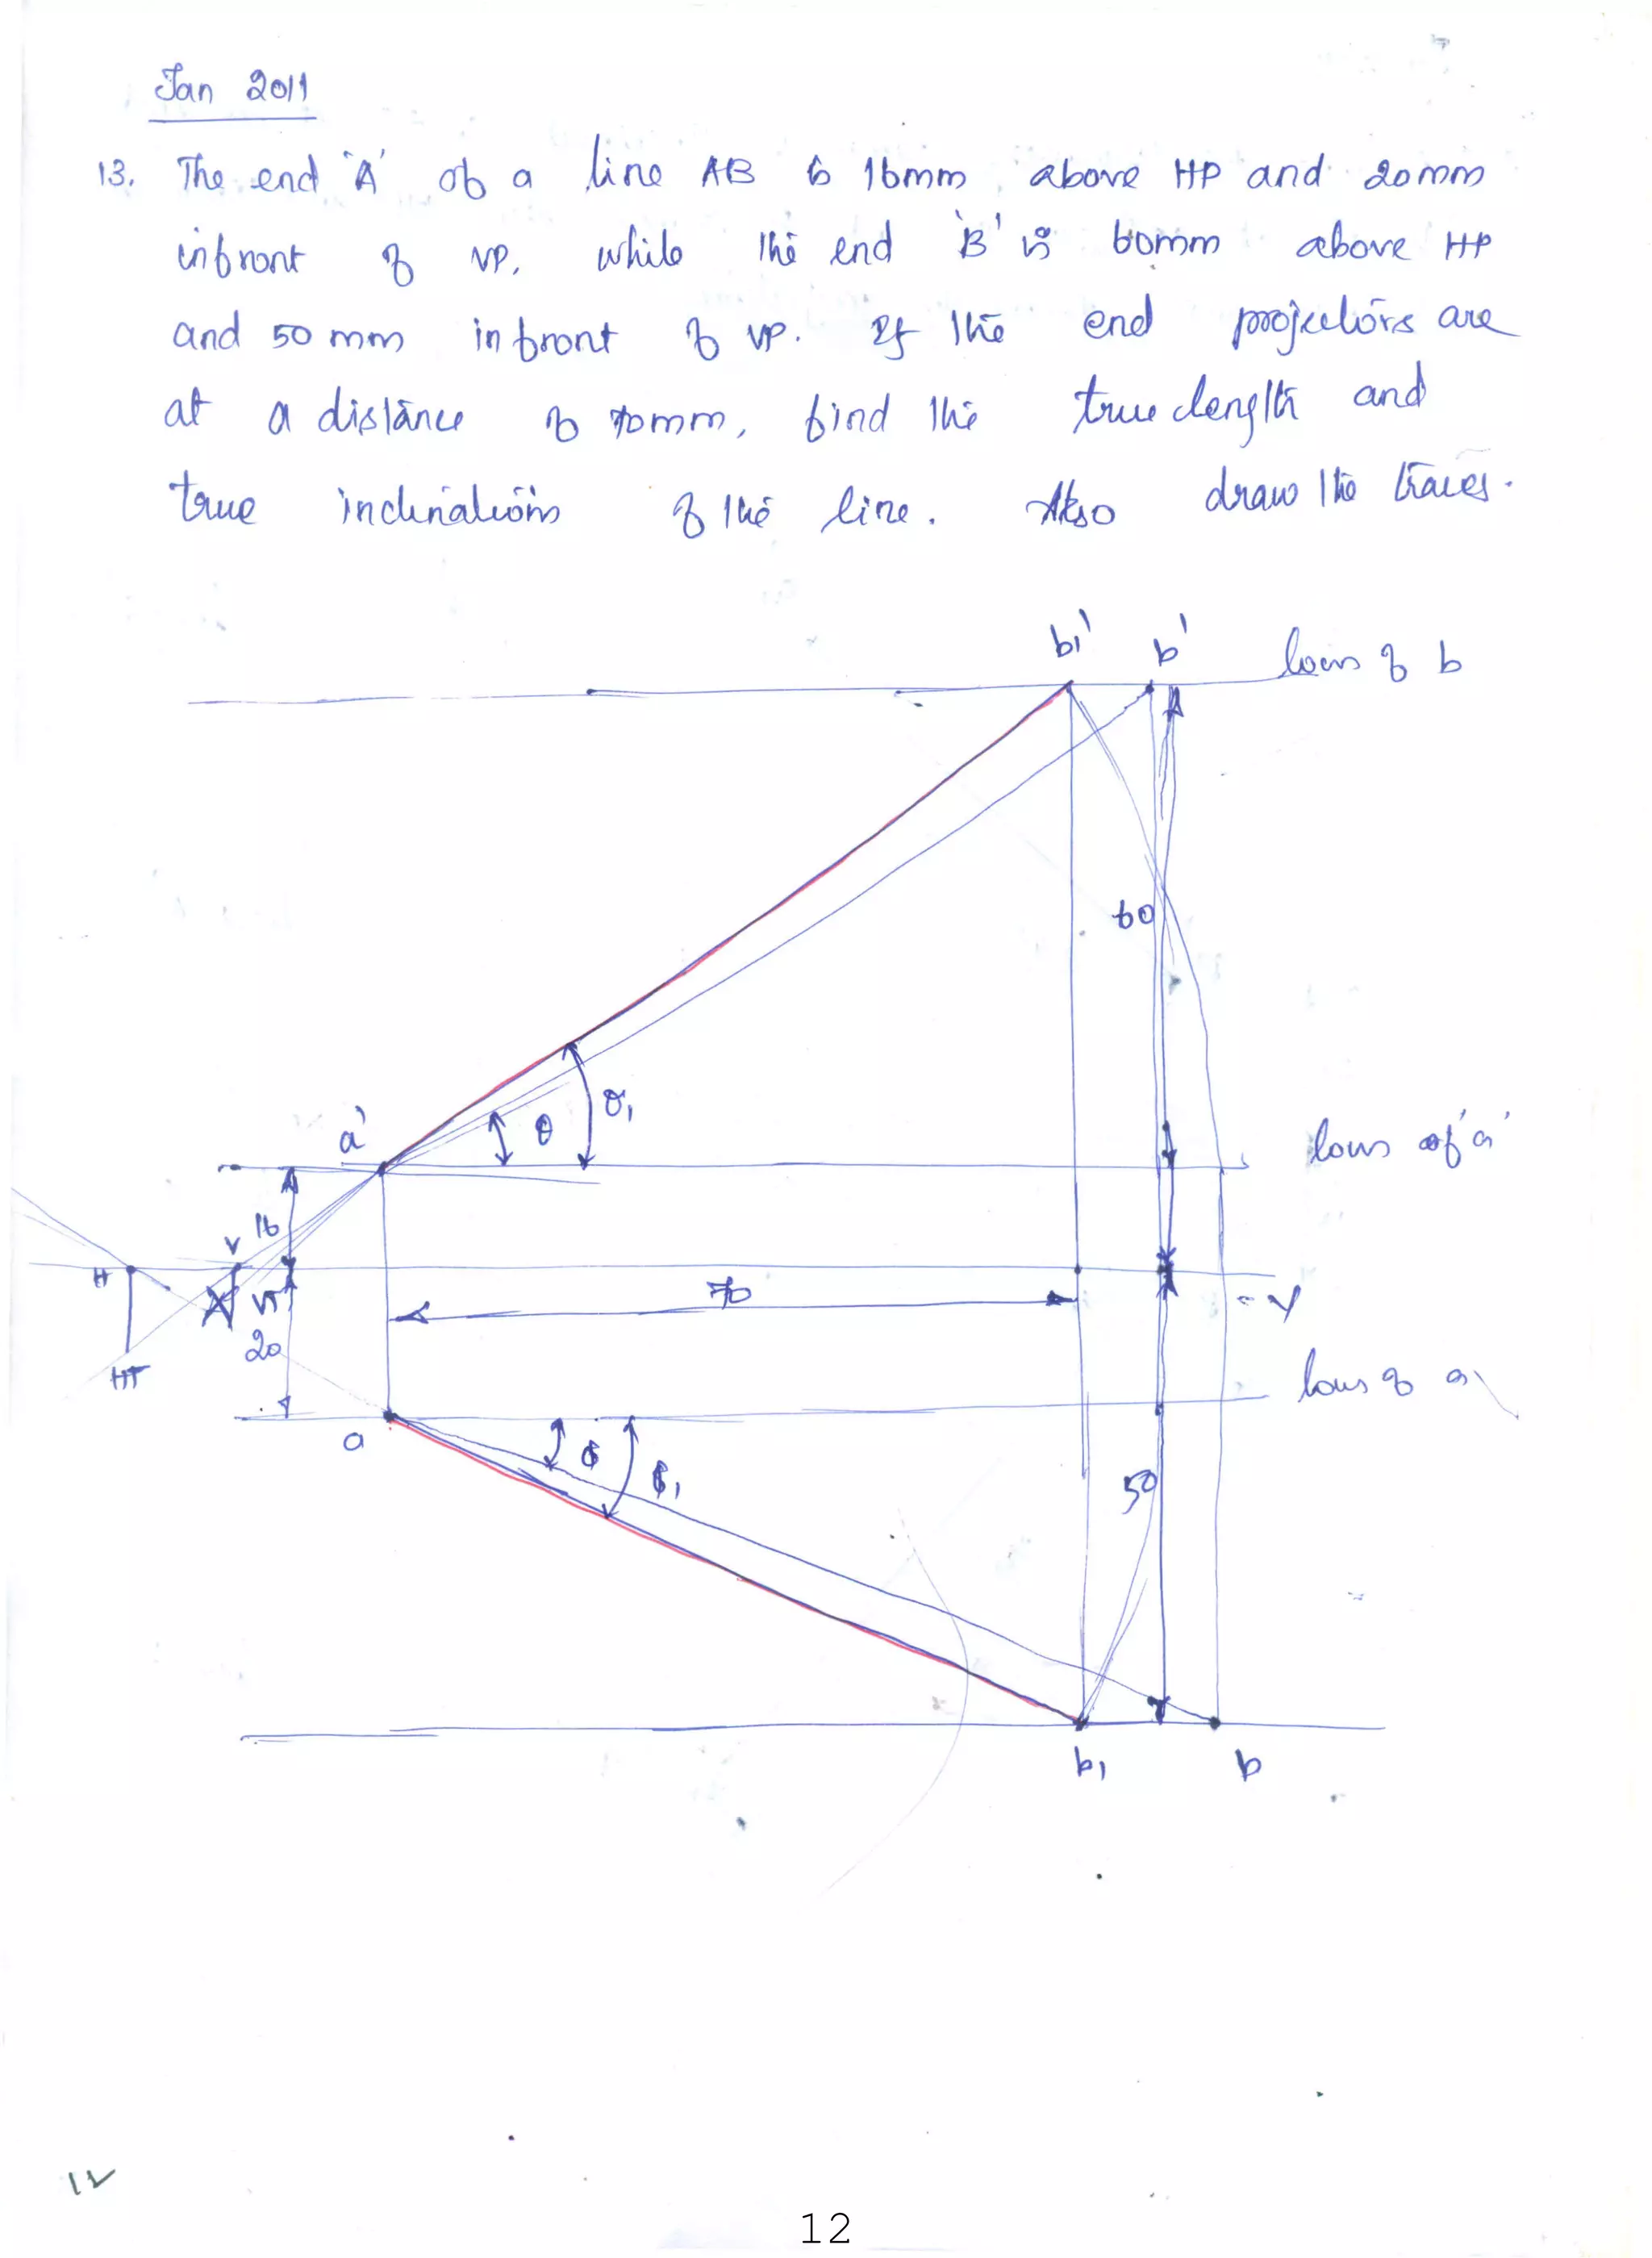 Jan 2011
13. The end 'A' of a line AB is 16mm above HP and 20mm
infront of VP, while the end 'B' is 60mm above HP
and 50mm infront of VP. If the end projectors are
at a distance of 70mm, find the true length and
true inclinations of the line. Also draw the traces.
b1' b' locus of b
60
a' θ θ1 locus of a'
16
H V
X VT 70 Y
20
HT locus of a
a φ φ1
50
b1 b
12
12